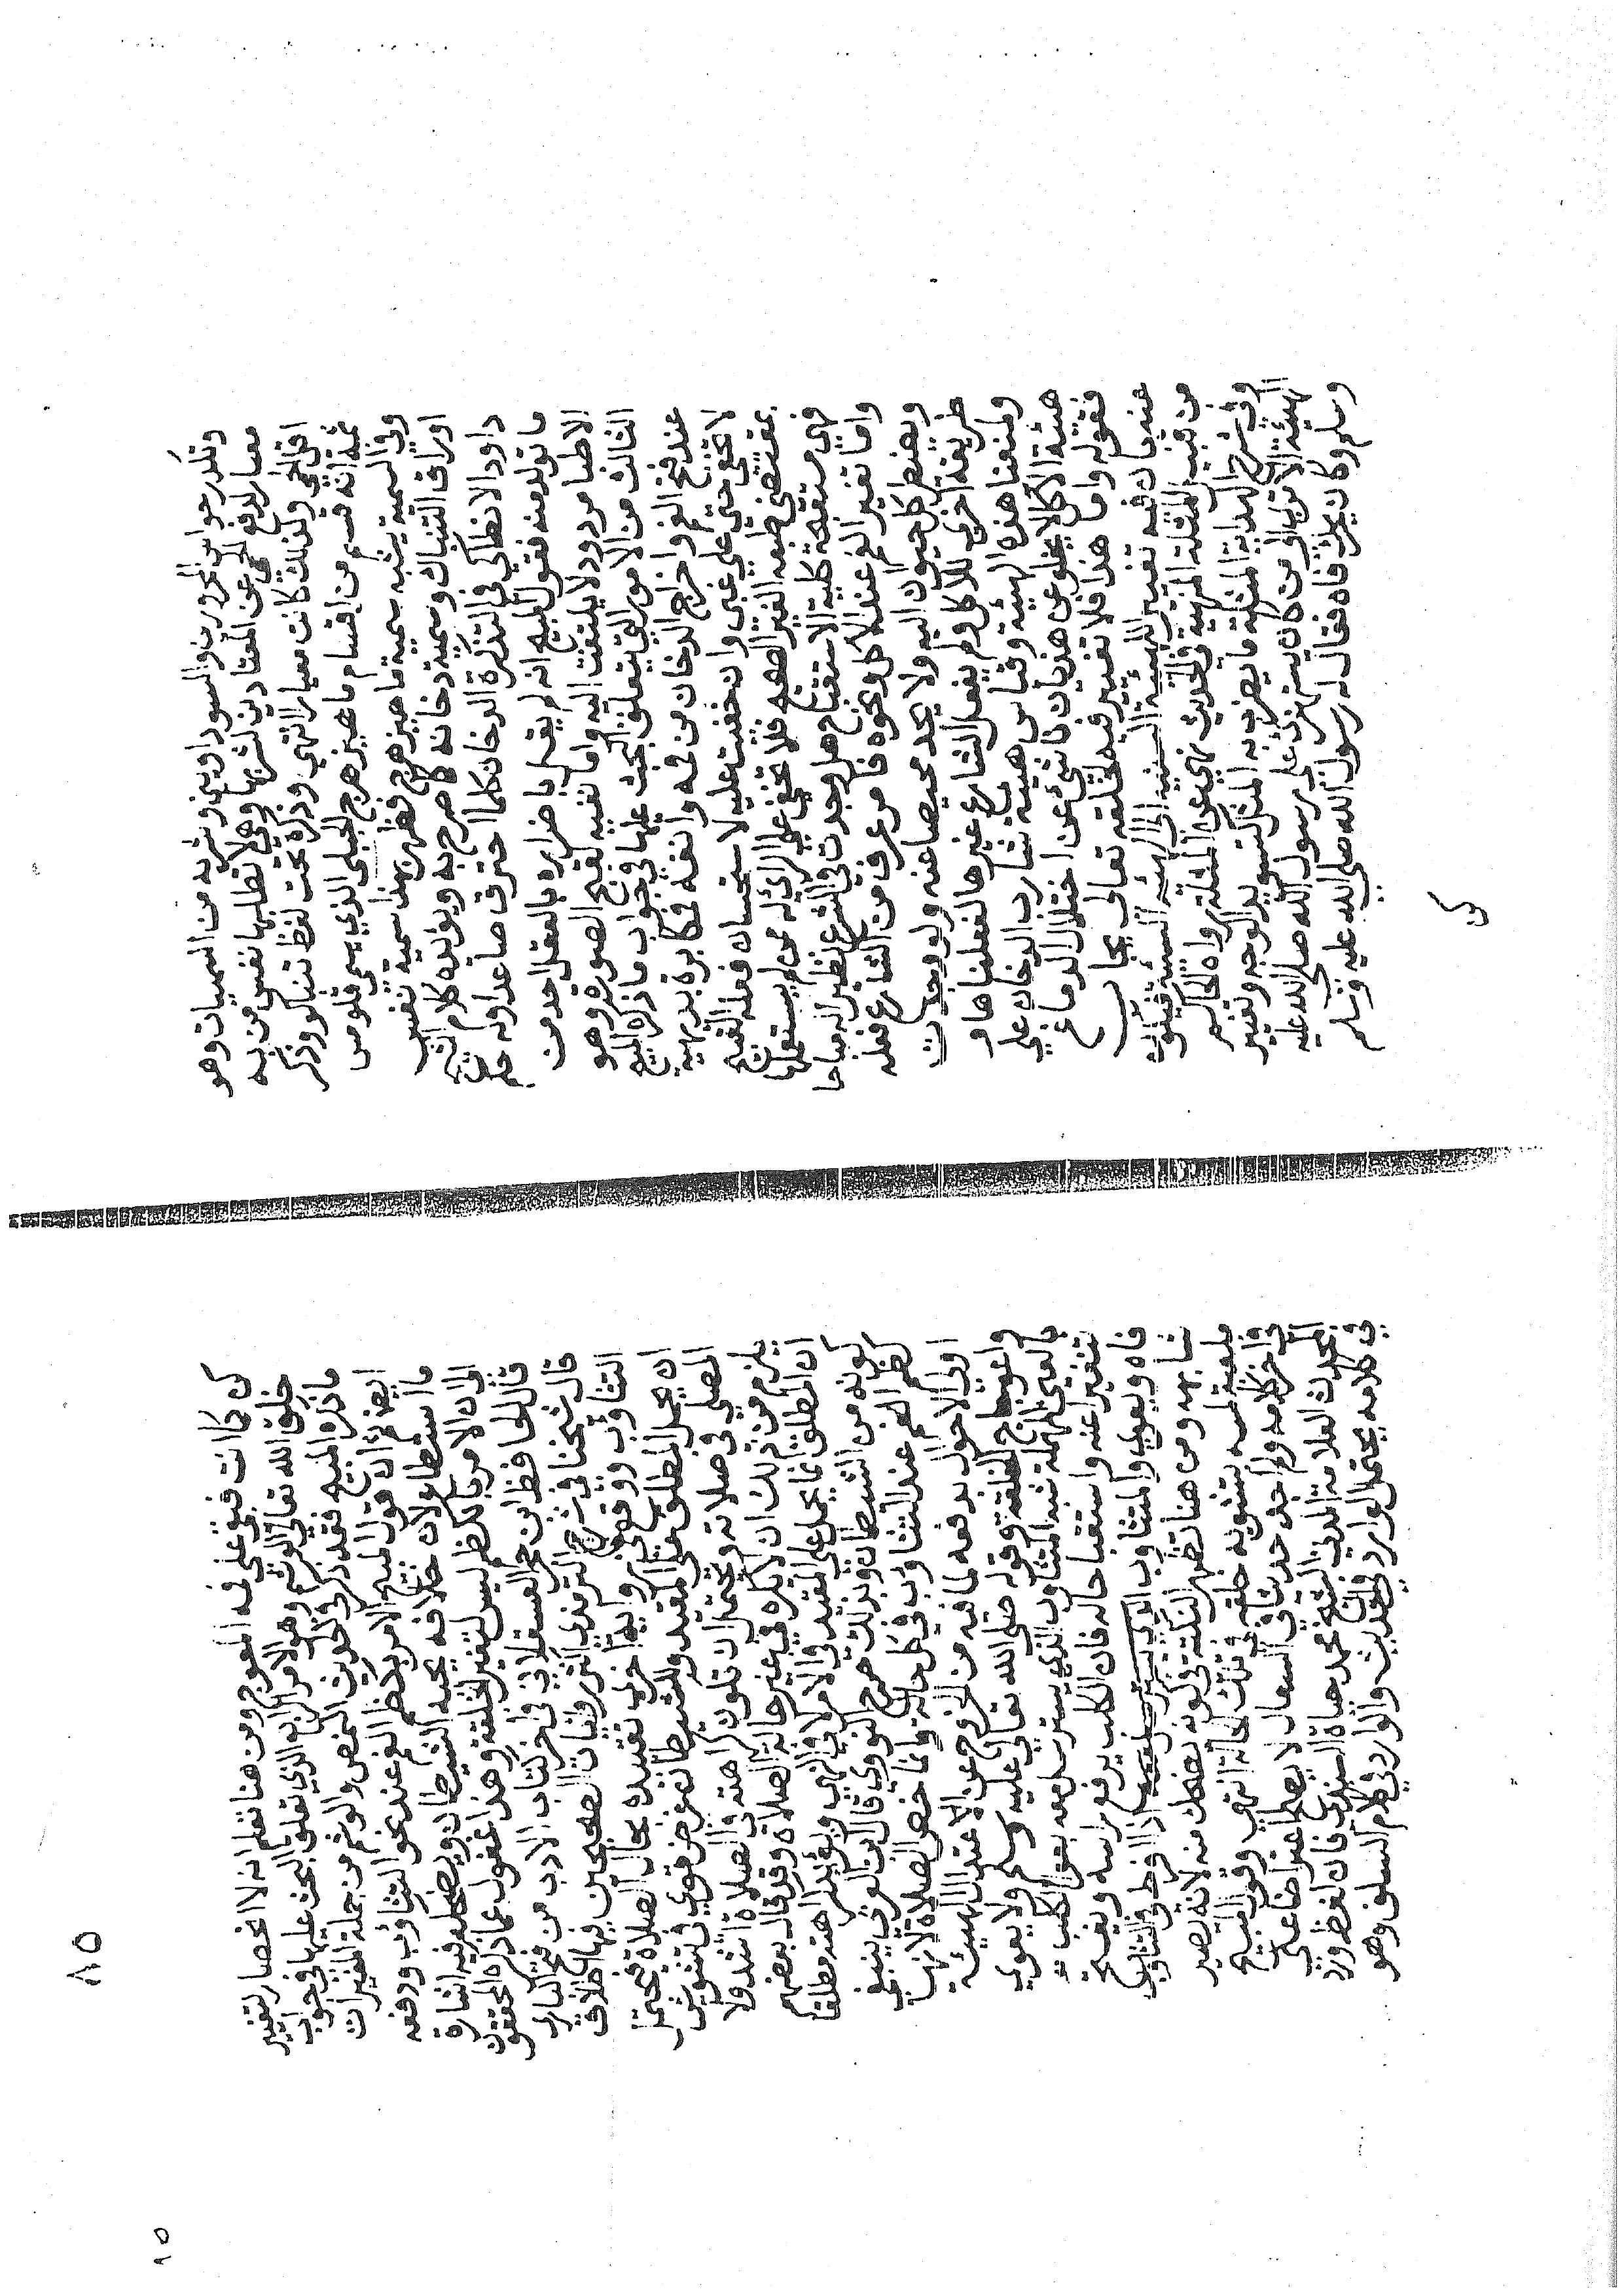 وتكدر حواس المحرورين والسوداويين وشربه من السميات وهو
معيار لدفع الحمى عن المعتادين لشربها وهي لا تطلبها نفس من به
اقل الحمى ولذلك كانت معيارا انتهى وذكره تحت لفظ تنباكو وذكر
ثمة انه قسم من اقسام ماهيزهرج الجبلي الذي يسمى قلومس
وفي السمية يشبه سمية ماهيزهرج فظهر بهذا سمية نفس
اوراق التنباك وسمية دخانه كما صرح به ويؤيده كلام الشيخ
داود الانطاكي في التذكرة الدخان كلما احترق صاعدا وله حكم
ما تولد منه فقول المبيح انه لم يقل باضراره بالعقل احد من
الاطبا مردود لا يلتفت اليه واما نفيه لقبح الصورة وهو
الثالث من الامور التي يتعلق البحث عليها في جواب ما ذكره المبيح
عند فتح الفم واخراج الدخان من فمه وانفه فمكابرة بديهية
لا تخفى حتى على غبي وان خفيت عليه لاستحسان فعله القبيح
بمقتضى طبعه الغير الصحيح فلا تخفى على الرائي له ممن لم يستعملها
فهي مستقبحة كلية الاستقباح هل وجدت في الشرع نظير له مباحا
واما تغير الفم عند الاكل ونحوه فامر عرف من الشارع فعله
ويضطر كل حيوان اليه ولا يجد محيصا عنه ولو وجدت
طريقة اخرى للاكل ولم يفعل الشارع غيرها لفعلناها و
ولمنعنا هذه الهيئة وقياس هيئة شارب الدخان على
هيئة الاكل لا يخلو عن هذيان ناشئ عن اختلال الدماغ
فقوله واما هذا فلا تغيير فيه لخلقه تعالى يجاب
عنه بان فيه تغيير الهيئة السنية الى الهيئة السيئة فيكون
من قبيل المثلة المنهية والحديث نهي عن المثلة رواه الحاكم
وفي شرح الهداية المثلة ما يضرب به المثل كتسويد الوجه وتغيير
الهيئة الا ترى الى من كان يستهزئ على رسول الله صلى الله عليه
وسلم وكان يميل فاه فقال له رسول الله صلى الله عليه وسلم
كن
٨٥
كن كانت فبقي على فمه المعوج ومن هنا نعلم انه لا انحصار لتغيير
خلق الله تعالى الوشم وهو الامر الرابع الذي تعلق البحث عليها في جواب
ما ذكره المبيح فقد ذكر في الحديث النمص والوشم من جملة المغيرات
ايضا ثم ان قول المبيح الامر بكظم الفم عند نحو التثاؤب ودفعه
ما استطاع ولان خلافه يحبه الشيطان ويضحك فيه اشارة
الى ان الامر بالكظم ليس لتغير الخلقة وهذا غفول عما ذكره المحققون
قال الحافظ ابن حجر العسقلاني في اخر كتاب الادب من فتح الباري
قال شيخنا في شرح الترمذي اكثر روايات الصحيحين فيها اطلاق
التثاؤب ووقع في رواية اخرى تقييده بحال الصلاة فيحتمل
ان يحمل المطلق على المقيد وللشيطان غرض قوي في تشويش
المصلي في صلاته ويحتمل ان تكون كراهته في الصلاة اشد ولا
يلزم من ذلك ان لا يكره في غير حالة الصلاة وقد قال بعضهم
ان المطلق انما يحمل على المقيد في الامر لا في النهي ويؤيد كراهته مطلقا
كونه من الشيطان وبذلك صرح النووي قال ابن العربي ينبغي
كظم الفم عند التثاؤب في كل حالة وانما خص الصلاة لانها
اولى الاحوال بدفعه لما فيه من الخروج عن اعتدال الهيئة
واعوجاج الخلقة وقوله صلى الله تعالى عليه وسلم ولا يعوي
بالعين المهملة شبه المتثاوب الذي يسترسل معه بعوي الكلب
تنفيرا عنه واستقباحا له فان الكلب يرفع راسه ويفتح
فاه ويعوي والمتثاوب اذا افرط في التثاوب
شابهه ومن هنا تظهر النكتة في كونه يضحك منه لانه يصير
ملعبة له بتشويه خلقه في تلك الحالة انتهى وقول المبيح
في اخر كلامه ولم اجد حديثا في السعال لا يصلح
المحدث العلامة المدني الشيخ محمد حياة السندي فان لفظ ورد
في كلامه يحتمل الوارد في الحديث والوارد في كلام السلف وهو